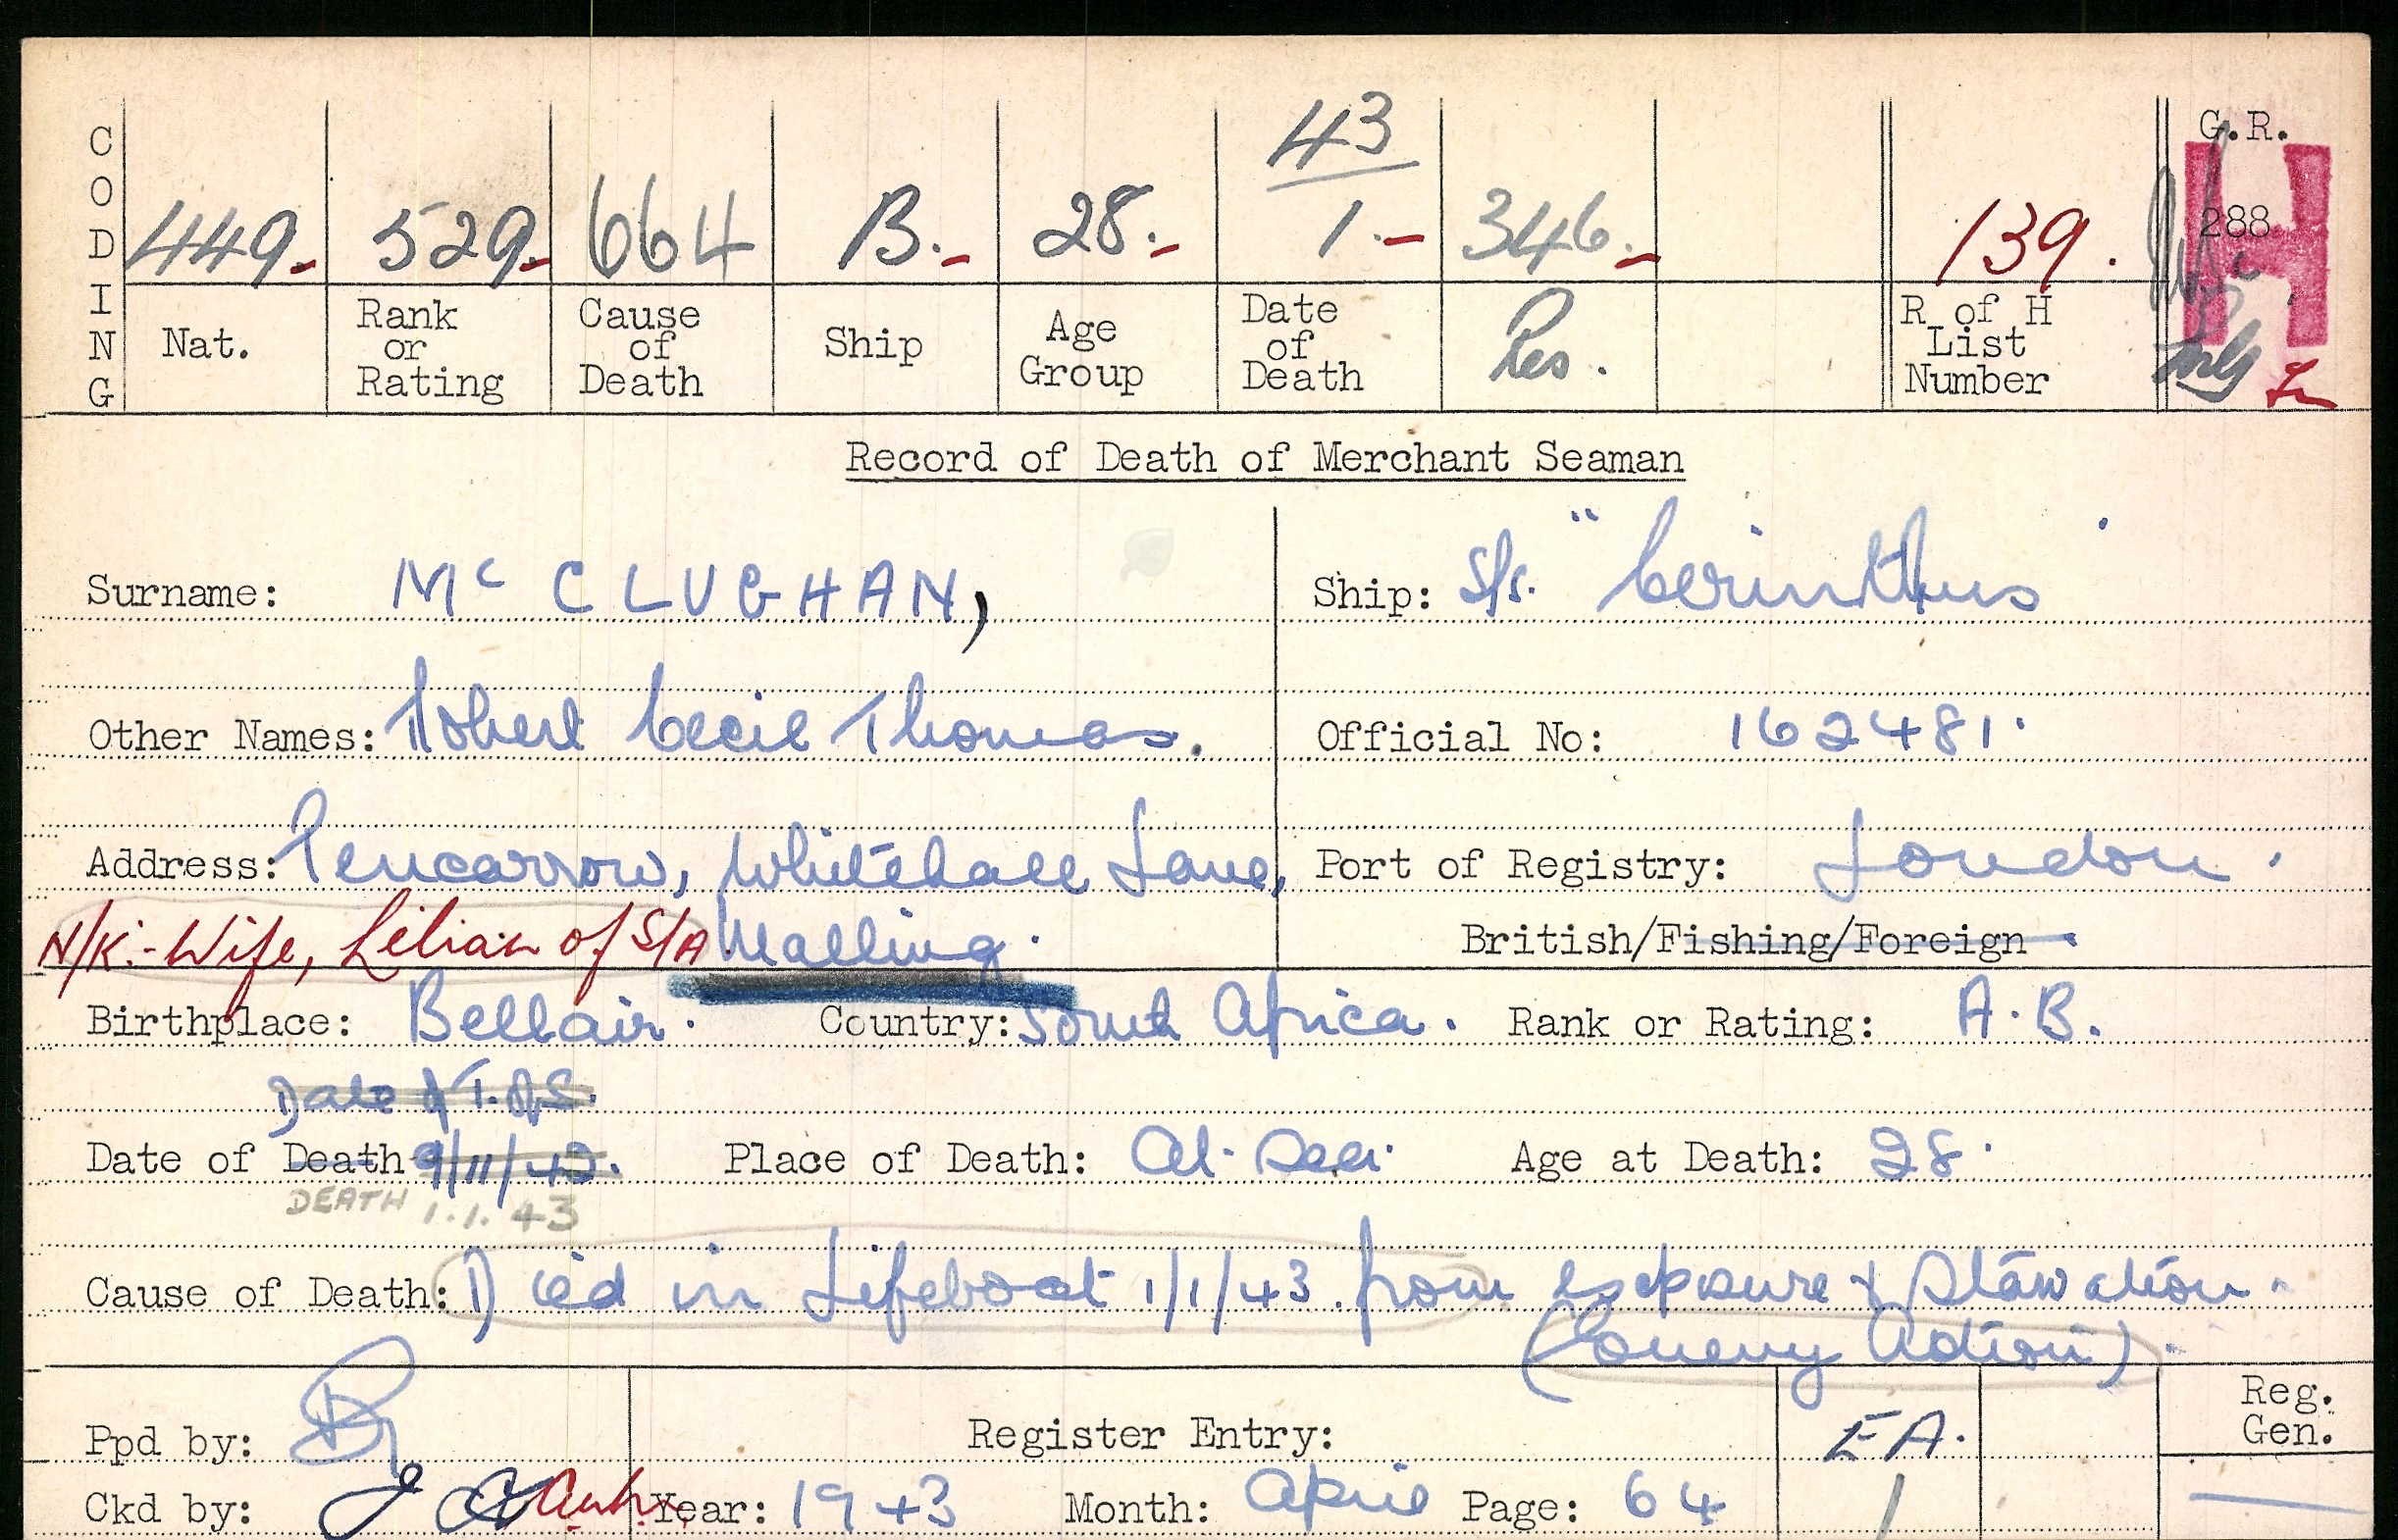 CODING
43
449. 529. 664 B. 28. 1. 346. 139.
G.R.
288
H
Nat. Rank or Rating Cause of Death Ship Age Group Date of Death Res. R of H List Number
Record of Death of Merchant Seaman
Surname: McCLUGHAN, Ship: S/s. "Cerinthus"
Other Names: Robert Cecil Thomas. Official No: 162481.
Address: Pencarrow, Whitehall Lane, Port of Registry: London.
N/K:- Wife, Lilian of S/A Malling. British/Fishing/Foreign
Birthplace: Bellair. Country: South Africa. Rank or Rating: A.B.
Date of T.D.S.
Date of Death 9/11/42. Place of Death: At Sea. Age at Death: 28.
DEATH 1.1.43
Cause of Death: Died in Lifeboat 1/1/43 from exposure & starvation.
(Enemy Action).
Ppd by: Register Entry: E A. Reg. Gen.
Ckd by: Year: 1943 Month: April Page: 64 1